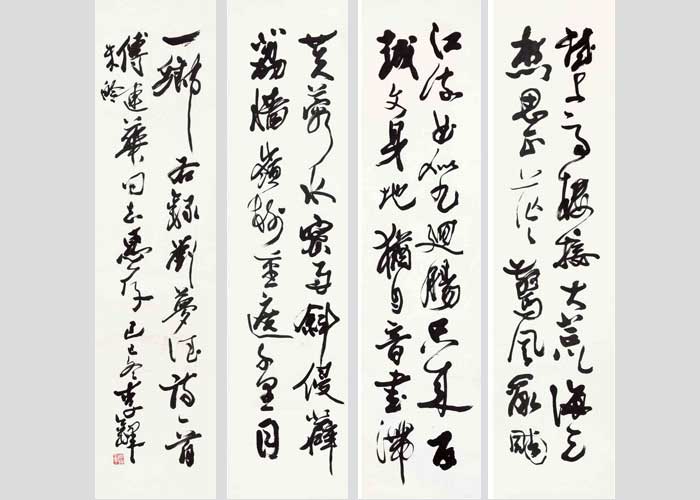 城上高樓接大荒海天
愁思正茫々驚風亂颭
江流曲似九迴腸共來百
越文身地猶自音書滯
芙蓉水密雨斜侵薜
荔墻嶺樹重遮千里目
一鄉 右錄劉夢得詩一首
傅建華同志惠存 己巳冬李鐸